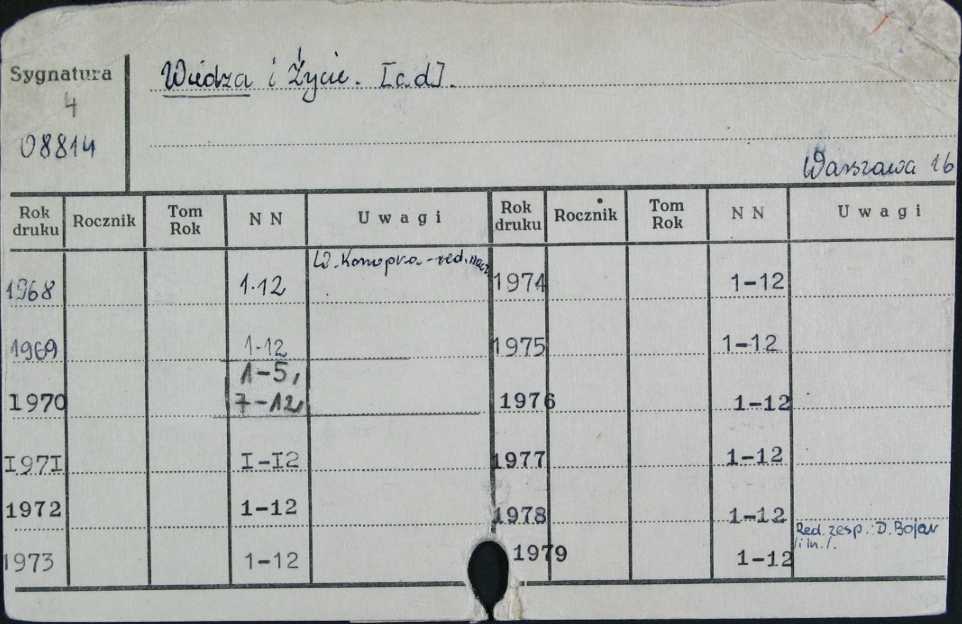 Sygnatura
4
08814
Wiedza i Życie. [c.d].
Warszawa 16
Rok druku Rocznik Tom Rok N N Uwagi Rok druku Rocznik Tom Rok N N Uwagi
1968 1-12 W. Konopka - red. nacz. 1974 1-12
1969 1-12 1975 1-12
1970 1-5, 7-12 1976 1-12
I97I I-I2 1977 1-12
1972 1-12 1978 1-12
1973 1-12 1979 1-12 Red. zesp.: D. Bojar /i in./.